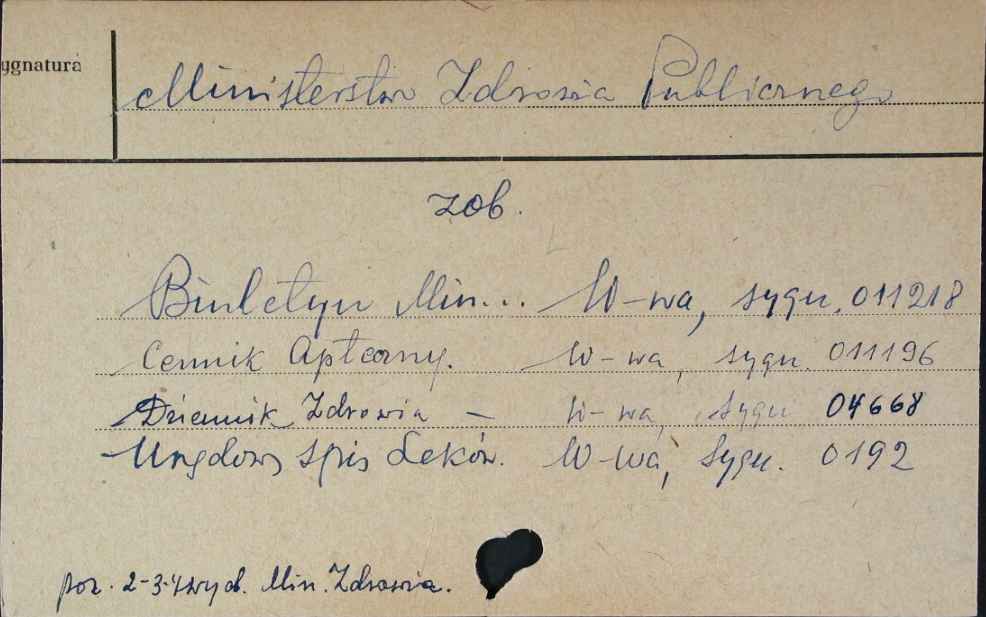 ygnatura
Ministerstwo Zdrowia Publicznego
zob.
Biuletyn Min... W-wa, sygn. 011218
Cennik Apteczny. W-wa, sygn. 011196
Dziennik Zdrowia - W-wa, sygn 04668
Urzędowy Spis Leków. W-wa, Sygn. 0192
poz. 2-3-4 wyd. Min. Zdrowia.